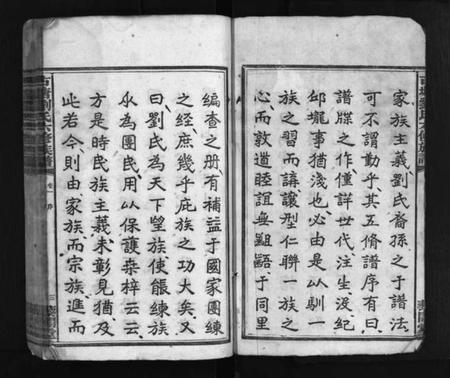 家族主義劉氏裔孫之于譜法
可不謂勤乎其五脩譜序有曰
譜牒之作僅詳世代注生沒紀
邱壠事猶淺也必由是以馴一
族之習而講讓型仁聯一族之
心而敦道睦誼無齟齬于同里
編查之冊有補益于國家團練
之經庶幾乎庇族之功大矣又
曰劉氏為天下望族使能練族
眾為團民用以保護桑梓云云
方是時民族主義未彰見猶及
此若今則由家族而宗族進而